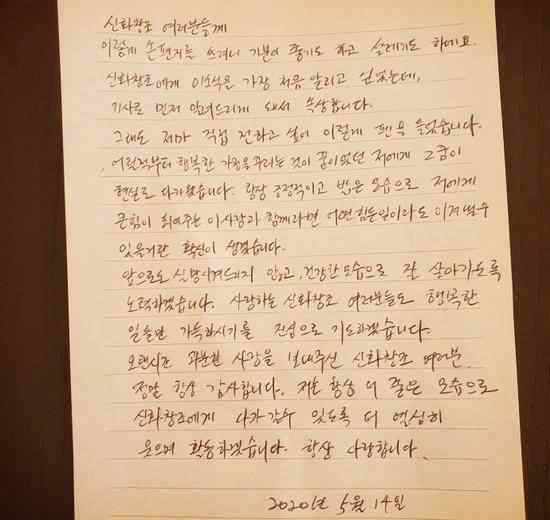 신화창조 여러분들께
이렇게 손편지를 쓰려니 기분이 좋기도 하고 설레기도 하네요.
신화창조에게 이 소식을 가장 처음 알리고 싶었는데,
기사로 먼저 알려드리게 돼서 속상합니다.
그래도 제가 직접 전하고 싶어 이렇게 펜을 들었습니다.
어릴적부터 행복한 가정을 꾸리는 것이 꿈이었던 저에게 그 꿈이
현실로 다가왔습니다. 항상 긍정적이고 밝은 모습으로 저에게
큰 힘이 되어주는 이 사람과 함께라면 어떤 힘든일이라도 이겨낼수
있을거란 확신이 생겼습니다.
앞으로도 실망시켜드리지 않고, 건강한 모습으로 잘 살아가도록
노력하겠습니다. 사랑하는 신화창조 여러분들도 행복한
일들만 가득하시기를 진심으로 기도하겠습니다.
오랜시간 과분한 사랑을 보내주신 신화창조 여러분.
정말 항상 감사합니다. 저는 항상 더 좋은 모습으로
신화창조에게 다가갈수 있도록 더 열심히
웃으며 활동하겠습니다. 항상 사랑합니다.
2020년 5월 14일